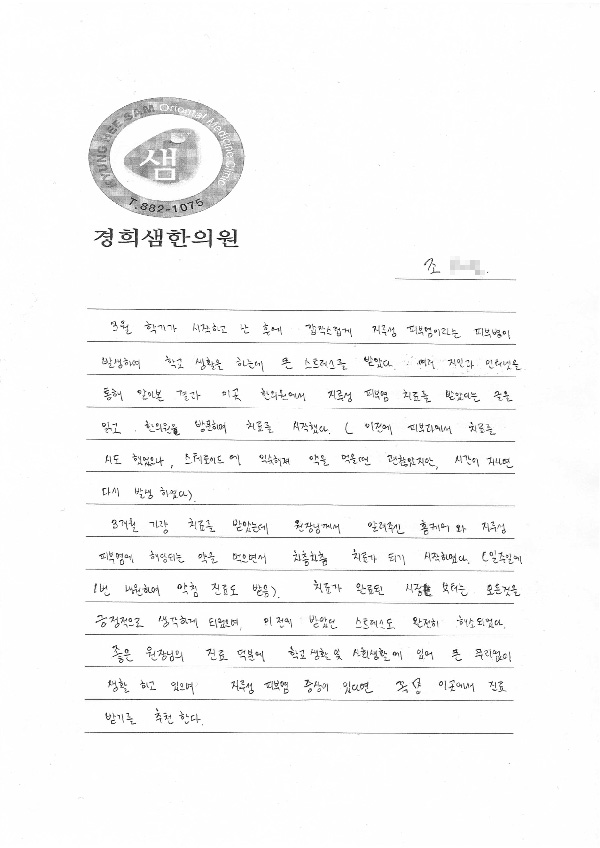 KYUNG HEE SAM Oriental Medicine Clinic
샘
T.882-1075
경희샘한의원
조
3월 학기가 시작하고 난 후에 갑작스럽게 지루성 피부염이라는 피부병이
발생하여 학교 생활을 하는데 큰 스트레스를 받았다. 여러 지인과 인터넷을
통해 알아본 결과 이곳 한의원에서 지루성 피부염 치료를 받았다는 글을
읽고 한의원을 방문하여 치료를 시작했다. ( 이전에 피부과에서 치료를
시도 했었으나, 스테로이드에 익숙해져 약을 먹을땐 괜찮았지만, 시간이 지나면
다시 발생 하였다).
3개월 가량 치료를 받았는데 원장님께서 알려주신 홈케어와 지루성
피부염에 해당되는 약을 먹으면서 차츰차츰 치료가 되기 시작하였다. (일주일에
1번 내원하여 약침 진료도 받음). 치료가 완료된 시점부터는 모든것을
긍정적으로 생각하게 되었으며, 이전에 받았던 스트레스도 완전히 해소되었다.
좋은 원장님의 진료 덕분에 학교생활 및 사회생활에 있어 큰 무리없이
생활 하고 있으며 지루성 피부염 증상이 있다면 꼭 이곳에서 진료
받기를 추천 한다.